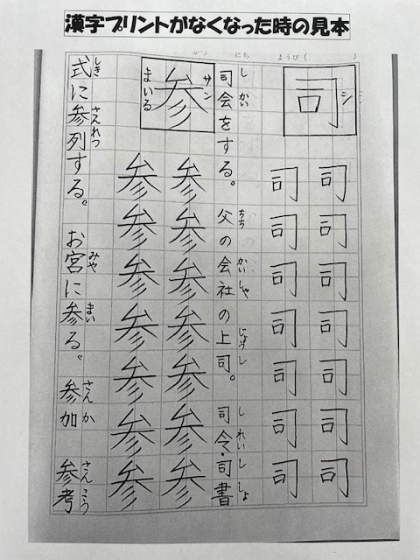 漢字プリントがなくなった時の見本
がつ にち ようび( )
司 シ
司 司 司 司 司 司 司
司 司 司 司 司 司 司
司会をする。 父の会社の上司。 司令・司書
し かい ちち かいしゃ じょうし し れい し しょ
参 サン まいる
参 参 参 参 参 参 参
参 参 参 参 参 参 参
式に参列する。 お宮に参る。 参加 参考
しき さんれつ みや まい さん か さん こう